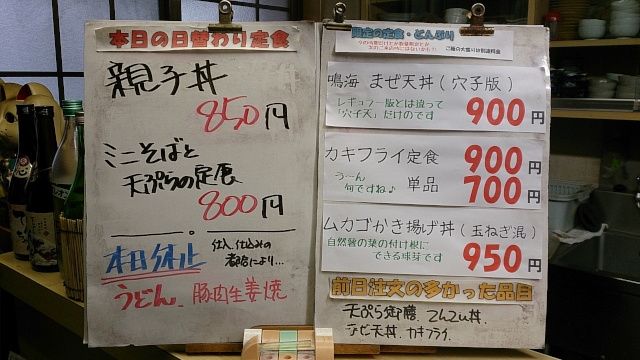 本日の日替わり定食
親子丼
850円
ミニそばと
天ぷらの定食
800円
本日休止
仕入、仕込みの
都合により…
うどん、豚肉生姜焼
限定の定食・どんぶり
ご飯の大盛りは別途料金
鳴海 まぜ天丼(穴子版)
レギュラー版とは違って
「穴子天」だけのです
900円
カキフライ定食 900円
う〜ん
旬ですね♪
単品 700円
ムカゴかき揚げ丼(玉ねぎ混)
自然薯の葉の付け根に
できる球芽です
950円
前日注文の多かった品目
天ぷら御膳、てんこし丼、
まぜ天丼、カキフライ、